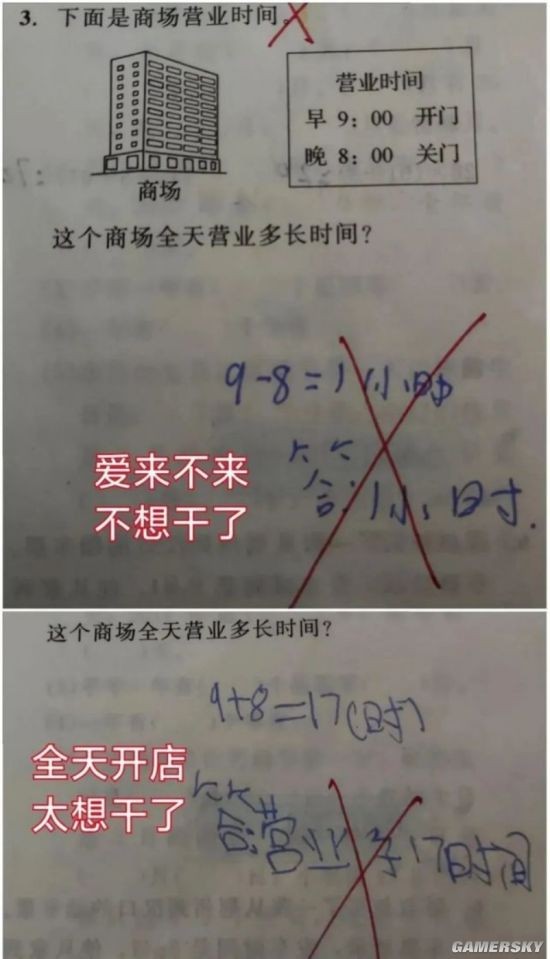 3. 下面是商场营业时间。
营业时间
早 9：00 开门
晚 8：00 关门
商场
这个商场全天营业多长时间？
9-8=1小时
答：1小时.
爱来不来
不想干了
这个商场全天营业多长时间？
9+8=17(时)
全天开店
太想干了
答:营业了17时间
GAMERSKY